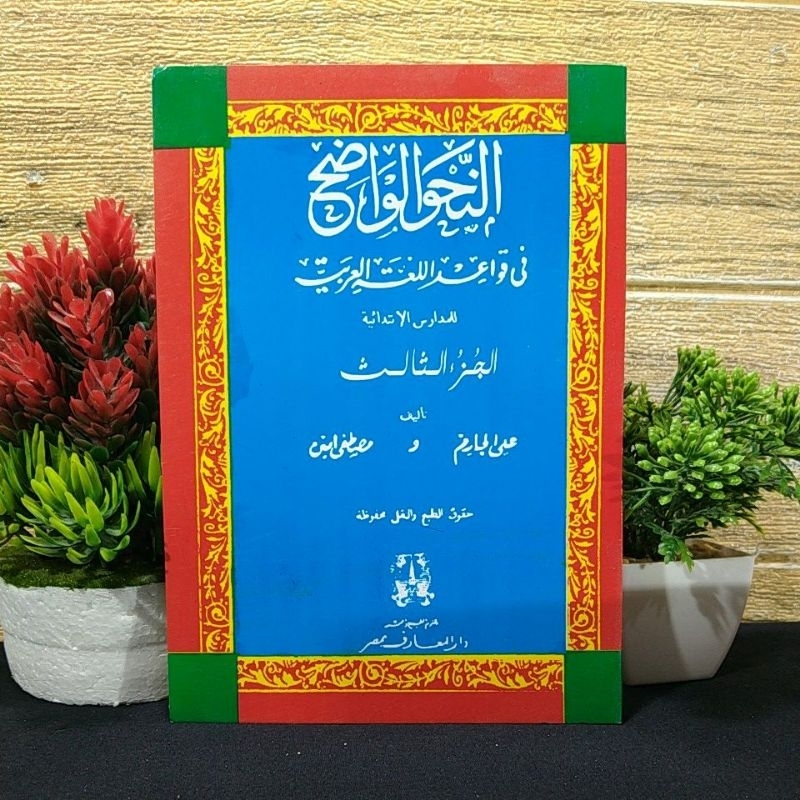 النَّحْوُ الْوَاضِحُ
فى قواعد اللغة العربية
للمدارس الابتدائية
الجُزءُ الثالث
تأليف
على الجارم و مصطفى أمين
حقوق الطبع والنقل محفوظة
دار المعارف بمصر